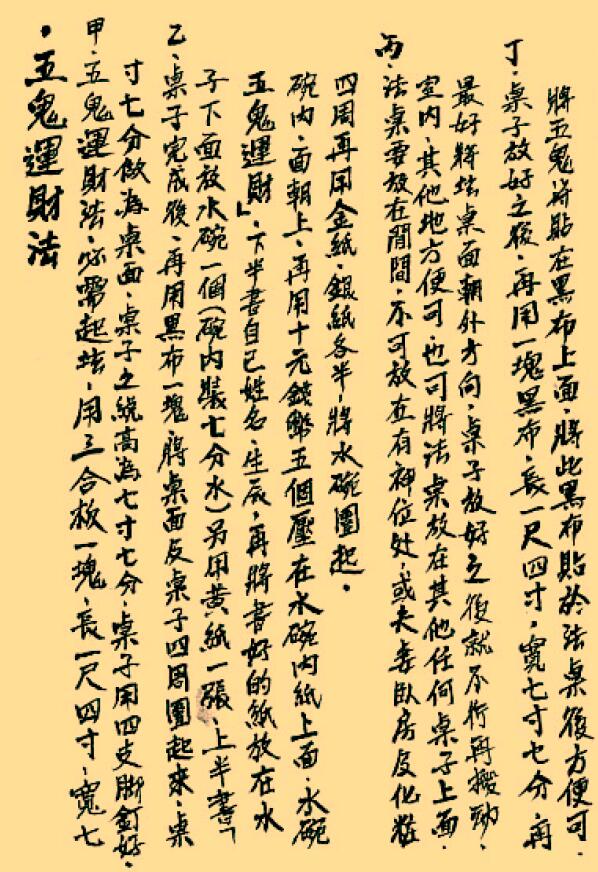 ．五鬼運財法
甲．五鬼運財法．必需起坛．用三合板一塊．長一尺四寸．寬七
寸七分做為桌面．桌子之総高為七寸七分．桌子用四支脚釘好．
乙．桌子完成後．再用黑布一塊．將桌面及桌子四周圍起來．桌
子下面放水碗一個(碗內裝七分水)另用黄紙一張．上半書「
五鬼運財」．下半書自己姓名．生辰．再將書好的紙放在水
碗內．面朝上．再用十元錢幣五個壓在水碗內紙上面．水碗
四周再用金紙．銀紙各半．將水碗圍起．
丙．法桌要放在閒間．不可放在有神位处．或夫妻臥房及化粧
室內．其他地方便可．也可將法桌放在其他任何桌子上面．
最好將坛桌面朝外方向．桌子放好之後就不行再搬動．
丁．桌子放好之後．再用一塊黑布．長一尺四寸．寬七寸七分．再
將五鬼符貼在黑布上面．將此黑布貼於法桌後方便可．